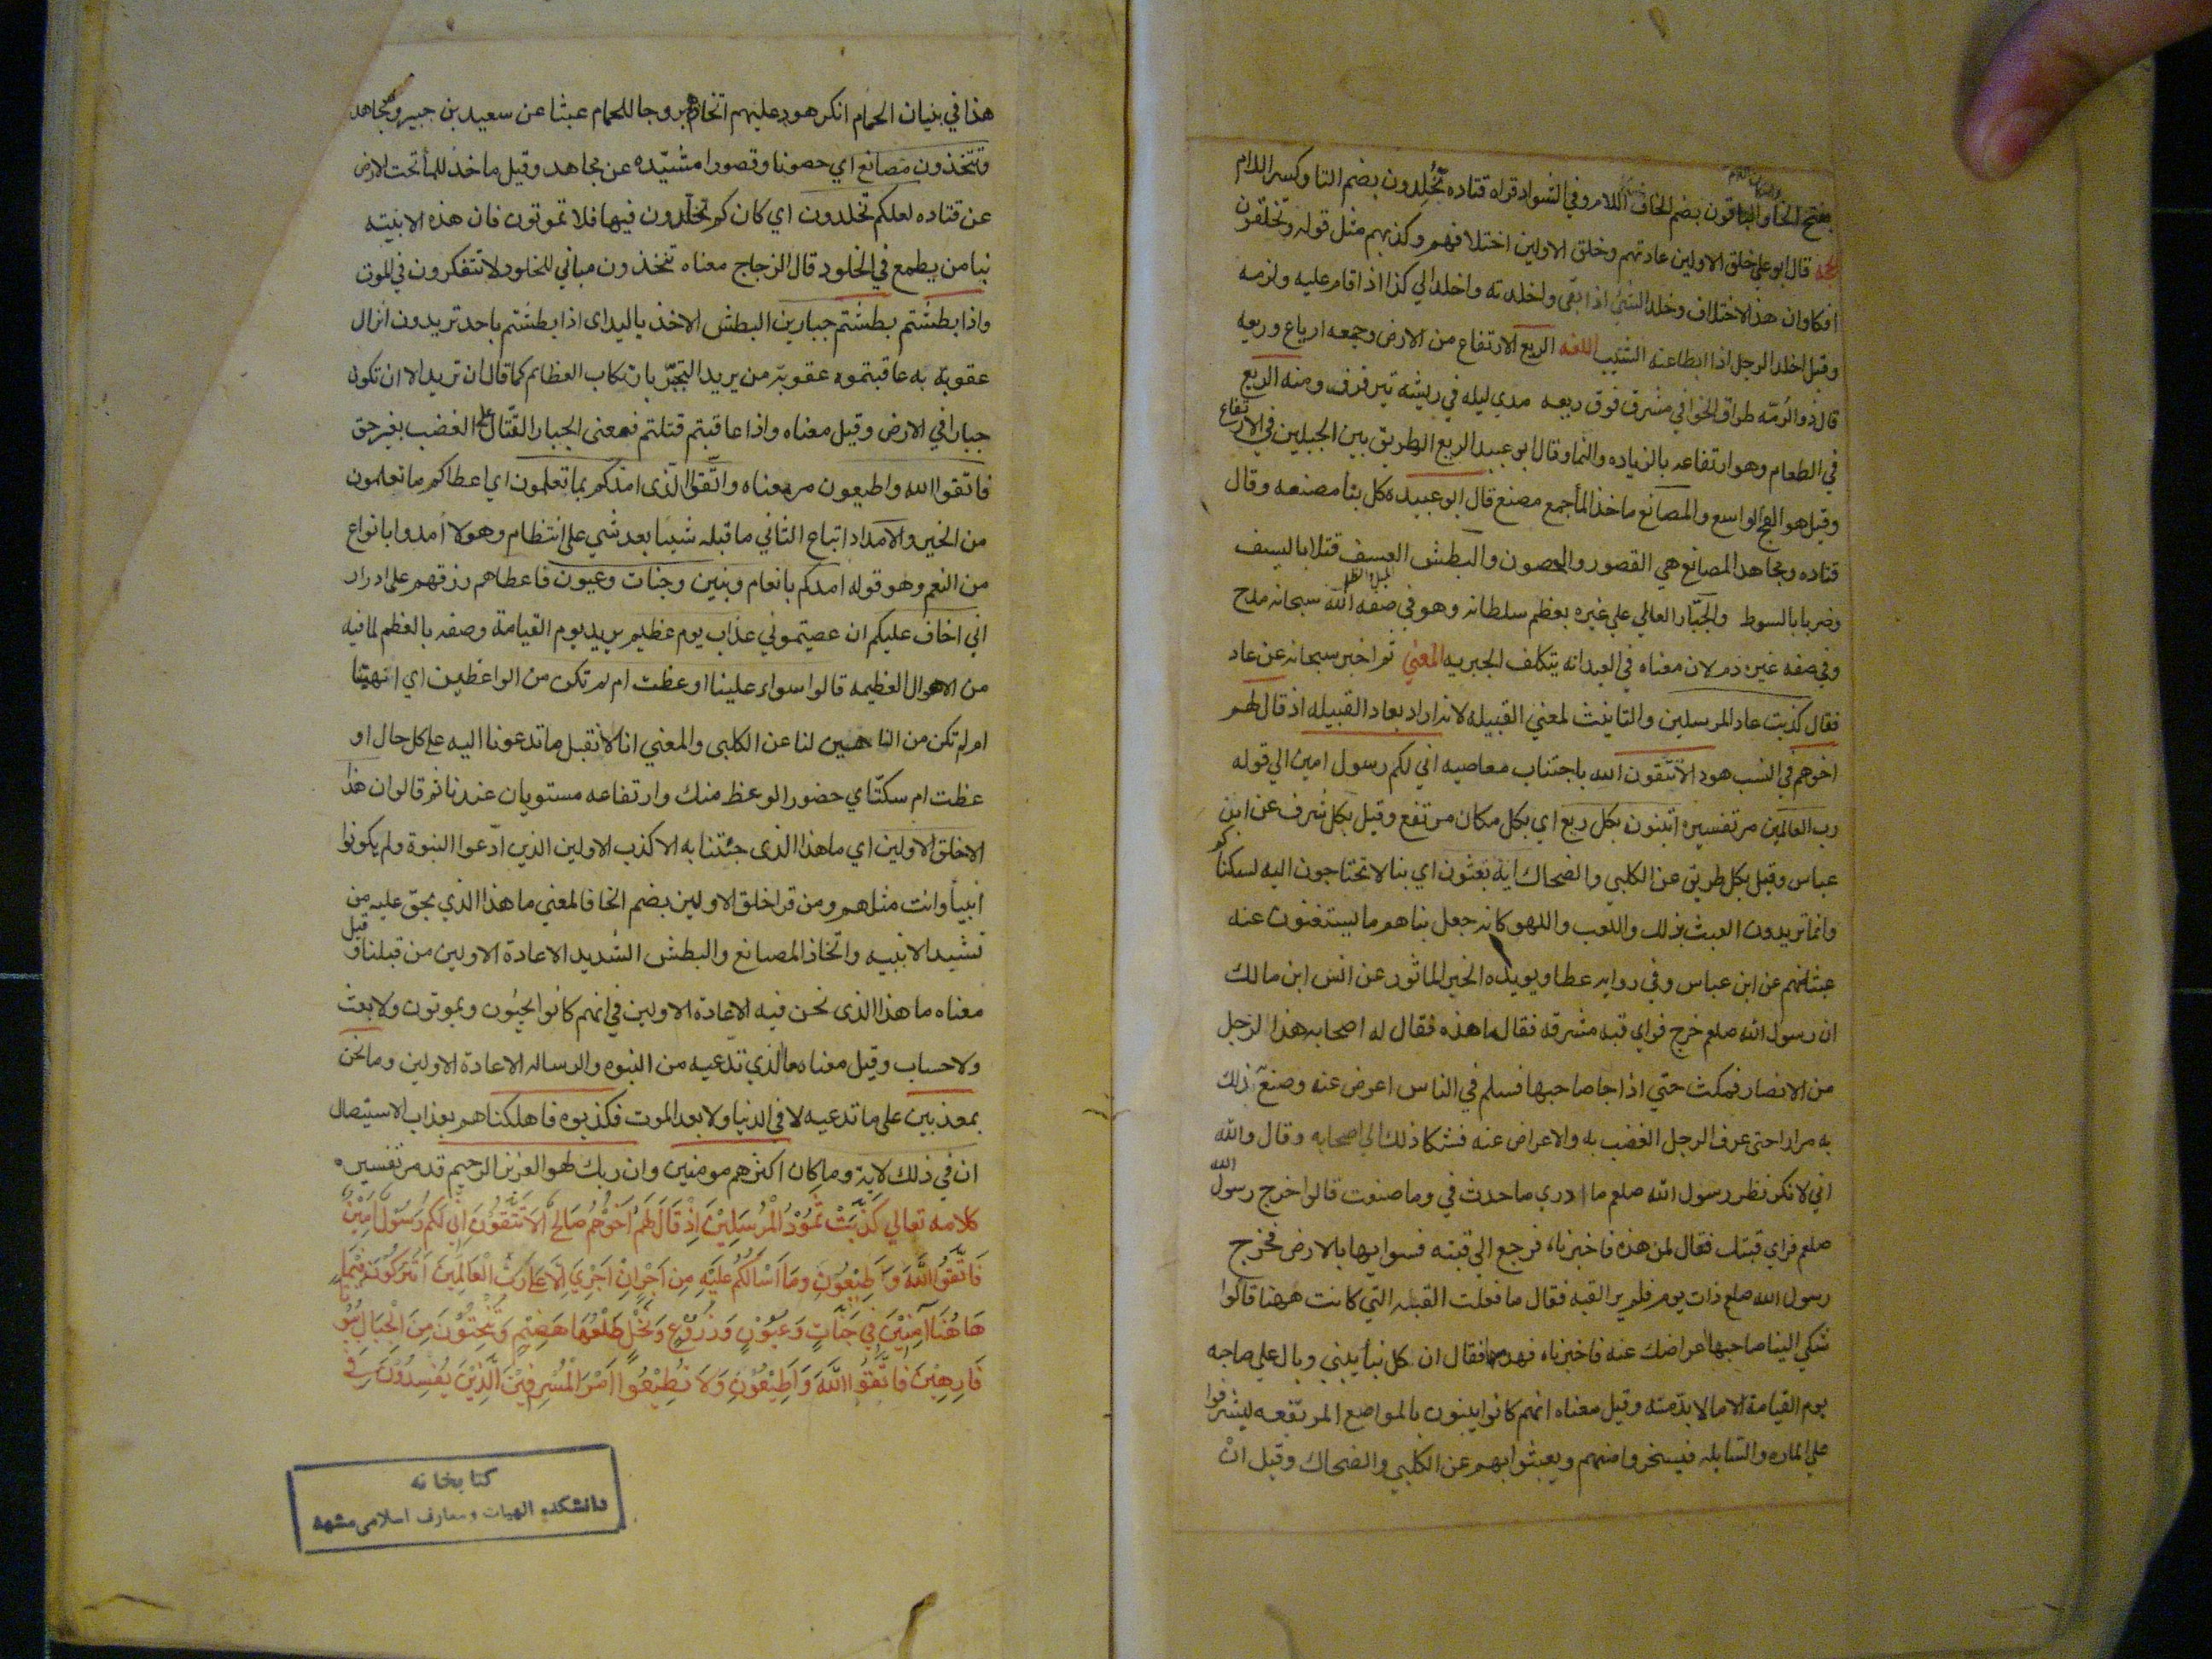 بفتح الخا والباقون بضم الخاف اللام وفي الشواد قراه قتاده تُخْلِدون بضم التا وكسر اللام
الحجه قال ابو علي خلق الاولين عادتهم وخلق الاولين اختلافهم وكذبهم مثل قوله وتخلقون
افكا وان هذا الاختلاف وخلد الشي اذا بقي واخلدته واخلد الي كذا اذا اقام عليه ولزمه
وقيل اخلد الرجل اذا ابطا عنه الشيب اللغه الريع الارتفاع من الارض وجمعه ارياع وريعه
قال ذو الرُمّه طراق الخوافي مشرق فوق ريعه مدي ليله في ريشه يترقرق ومنه الريع
في الطعام وهو ارتفاعه بالزياده والنما وقال ابو عبيد الريع الطريق بين الجبلين في الارتفاع
وقيل هو الفج الواسع والمصانع ماخذ المأ جمع مصنع قال ابو عبيده كل بنأ مصنعه وقال
قتاده ومجاهد المصانع هي القصور والحصون والبطش العسف قتلا بالسيف
وضربا بالسوط والجبّار العالي علي غيره بعظم سلطانه وهو في صفه الله سبحانه مدح
وفي صفه غيره ذم لان معناه في العبد انه يتكلف الجبريه المعني ثم اخبر سبحانه عن عاد
فقال كذبت عاد المرسلين والتانيث لمعني القبيله لانه اراد بعاد القبيله اذ قال لهم
اخوهم في النسب هود الا تتقون الله باجتناب معاصيه اني لكم رسول امين الي قوله
رب العالمين مر تفسيره اتبنون بكل ريع اي بكل مكان مرتفع وقيل بكل شرف عن ابن
عباس وقيل بكل طريق عن الكلبي والضحاك اية تعبثون اي بنا لا تحتاجون اليه لسكناكم
وانما تريدون العبث بذلك واللعب واللهو كانه جعل بناهم ما يستغنون عنه
عبثا منهم عن ابن عباس وفي روايه عطا ويويده الخبر الماثور عن انس ابن مالك
ان رسول الله صلعم خرج فراي قبه مشرقه فقال ما هذه فقال له اصحابه هذا لرجل
من الانصار فمكث حتي اذا جا صاحبها فسلم في الناس اعرض عنه وصنع ذلك
به مرارا حتى عرف الرجل الغضب به والاعراض عنه فشكا ذلك الي اصحابه وقال والله
اني لانكر نظر رسول الله صلعم ما ادري ما حدث في وما صنعت قالوا خرج رسول الله
صلعم فراي قبتك فقال لمن هذه فاخبرناه فرجع الي قبته فسواها بالارض فخرج
رسول الله صلع ذات يوم فلم ير القبه فقال ما فعلت القبه التي كانت ههنا قالوا
شكي الينا صاحبها اعراضك عنه فاخبرناه فهدمها فقال ان كل بنأ يبني وبال علي صاحبه
يوم القيامة الا ما لا بد منه وقيل معناه انهم كانوا يبنون بالمواضع المرتفعه ليشرفوا
علي الماره والسابله فيسخروا منهم ويعبثوا بهم عن الكلبي والضحاك وقيل انْ
هذا في بنيان الحمام انكر هود عليهم اتخاذهم بروجا للحمام عبثا عن سعيد بن جبير ومجاهد
وتتخذون مصانع اي حصونا وقصورا مشيّده عن مجاهد وقيل ماخذ للمأ تحت الارض
عن قتاده لعلكم تخلدون اي كانكم تخلّدون فيها فلا تموتون فان هذه الابنيته
بنا من يطمع في الخلود قال الزجاج معناه تتخذون مباني للخلود لا تتفكرون في الموت
واذا بطشتم بطشتم جبارين البطش الاخذ باليد اى اذا بطشتم باحد تريدون انزال
عقوبة به عاقبتموه عقوبة من يريد التجبّر بارتكاب العظائم كما قال ان تريد الا ان تكون
جبارا في الارض وقيل معناه واذا عاقبتم قتلتم فمعنى الجبار القتّال على الغضب بغير حق
فاتّقوا الله واطيعون مر معناه واتّقوا الّذى امدّكم بما تعلمون اي اعطاكم ما تعلمون
من الخير والامداد اتباع الثاني ما قبله شيىا بعد شي على انتظام وهولا امدوا بانواع
من النعم وهو قوله امدكم بانعام وبنين وجنات وعيون فاعطاهم رزقهم على ادرار
اني اخاف عليكم ان عصيتموني عذاب يوم عظيم يريد يوم القيامة وصفه بالعظم لما فيه
من الاهوال العظيمه قالوا سواء علينا اوعظت ام لم تكن من الواعظين اي انهيتنا
ام لم تكن من الناهين لنا عن الكلبى والمعني انا لا نقبل ما تدعونا اليه على كل حال او
عظت ام سكتّ اي حضور الوعظ منك وارتفاعه مستويان عندنا ثم قالوا ان هذا
الا خلق الاولين اي ما هذا الذى جئتنا به الا كذب الاولين الذين ادّعوا النبوة ولم يكونوا
انبيأ وانت مثلهم ومن قرا خلق الاولين بضم الخا فالمعني ما هذا الذي نحن عليه من
تشييد الابنيه واتّخاذ المصانع والبطش الشديد الا عادة الاولين من قبلنا وقيل
معناه ما هذا الذى نحن فيه الا عادة الاولين في انهم كانوا يحيُون ويموتون ولا بعث
ولا حساب وقيل معناه ما الذي تدعيه من النبوه والرساله الا عادة الاولين وما نحن
بمعذبين على ما تدعيه لا فى الدنيا ولا بعد الموت فكذبوه فاهلكناهم بعذاب الاستيصال
ان في ذلك لاية وما كان اكثرهم مومنين وان ربك لهو العزيز الرحيم قد مر تفسيره
كلامه تعالي كَذَّبَتْ ثَمُوْدُ الْمُرْسَلِيْنَ اِذْ قَالَ لَهُمْ اَخُوْهُمْ صَالِحٌ اَلَا تَتَّقُوْنَ اِنِّي لَكُمْ رَسُوْلٌ اَمِيْنٌ
فَاتَّقُوا اللّٰهَ وَاَطِيْعُوْنِ وَمَا اَسْاَلُكُمْ عَلَيْهِ مِن اَجْرٍ اِنْ اَجْرِيَ اِلَّا عَلَى رَبِّ الْعَالَمِيْنَ اَتُتْرَكُوْنَ فِيْمَا
هَاهُنَا آمِنِيْنَ فِي جَنَّاتٍ وَعُيُوْنٍ وَزُرُوْعٍ وَنَخْلٍ طَلْعُهَا هَضِيْمٌ وَتَنْحِتُوْنَ مِنَ الْجِبَالِ بُيُوْتًا
فَارِهِيْنَ فَاتَّقُوا اللّٰهَ وَاَطِيْعُوْنِ وَلَا تُطِيْعُوا اَمْرَ الْمُسْرِفِيْنَ الَّذِيْنَ يُفْسِدُوْنَ فِي
كتابخانه
دانشكده الهيات و معارف اسلامى مشهد